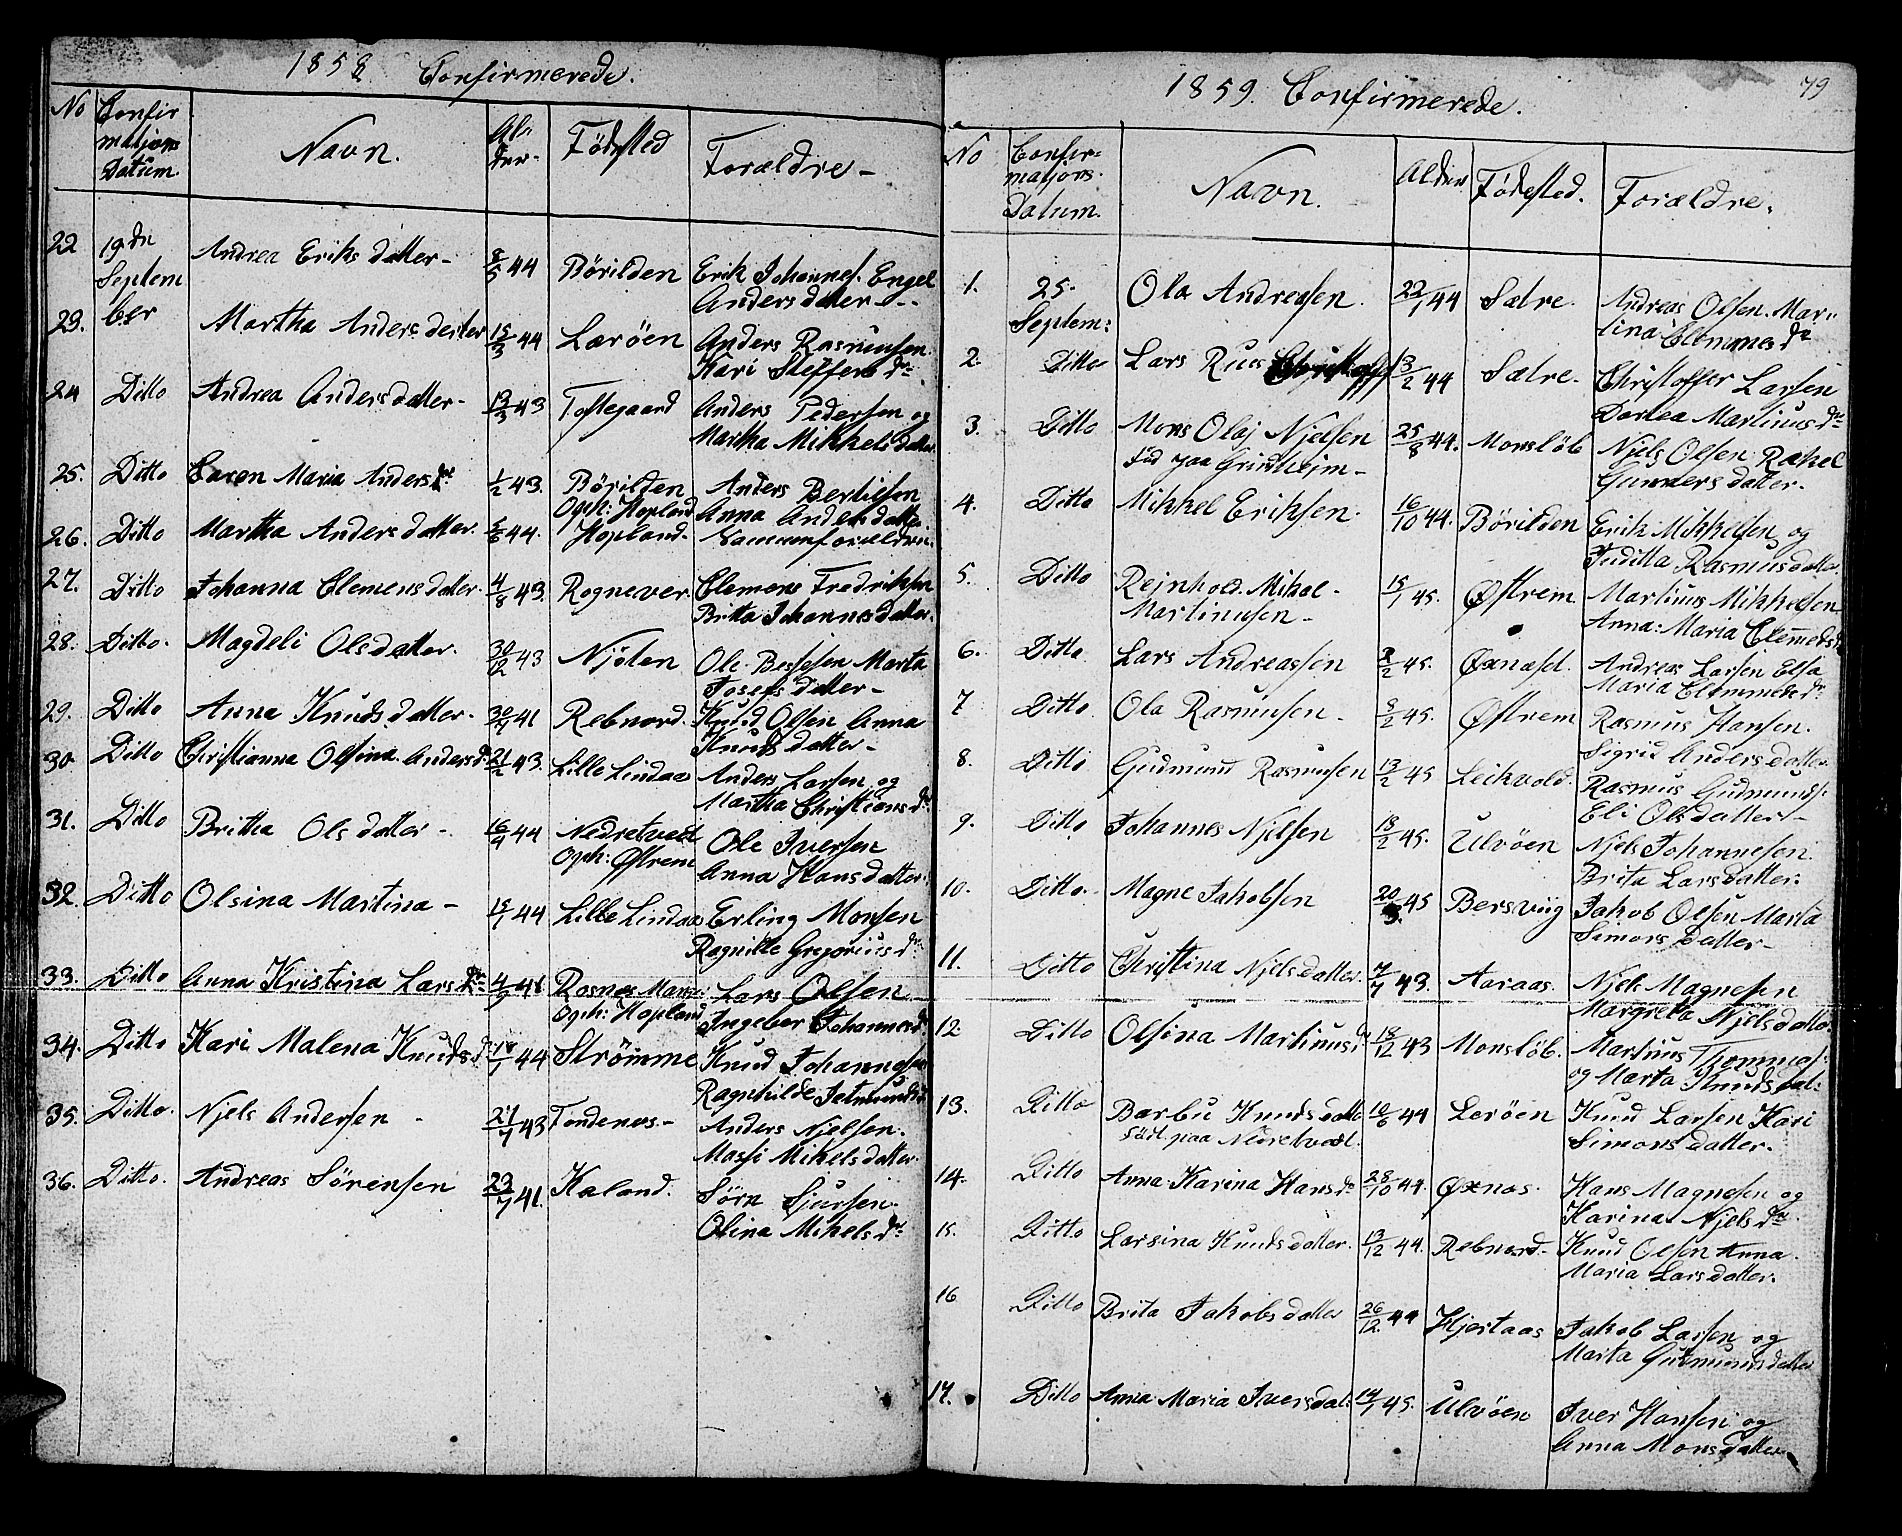 1858. Confirmerede.
No Confirmations Datum. Navn. Alder. Födested Forældre
22 19dn September Andrea Eriksdatter 8/5 44 Börilden Erik Johannes. Engel
Andersdatter
23. Martha Andersdatter 15/3 44 Læröen Anders Rasmusen
Kari Steffens dr
24 Ditto Andrea Andersdatter 19/3 43 Toftegaard Anders Pedersen og
Martha Mikkelsdatter
25. Ditto Caren Maria Anders dr 1/2 43. Börilden Anders Bertiesen
Oph: Hopland Anna Andersdatter
26. Ditto Martha Andersdatter. 5/6 44. Hopland Sammeforældren.
27. Ditto Johanna Clemensdatter. 4/8 43. Rognever Clemens Fredriksen
Britta Johannesdatter.
28. Ditto. Magdeli Olsdatter. 30/12 43 Njöten Ole Bessesen Marta
Josefsdatter
29. Ditto Anna Knudsdatter. 41 Rebnord. Knud Olsen Anna
Knudsdatter
30 Ditto Christianna Olsina Andersd. 21/2 43. Lille Lindaas Anders Larsen og
Martha Christians dr
31. Ditto Britha Olsdatter 16/4 44 Nedretvedt Ole Iversen
Oph: Østrem Anna Hansdatter.
32. Ditto Olsina Martina 15/7 44 Lille Lindaas Erling Monsen
Ragnille Gregorius dr
33. Ditto Anna Kristina Lars dr 4/9 41 Rosnes Lars Olsen
Oph: Hopland Ingebor Johannesd.
34. Ditto Kari Malena Knudsd. 44 Strömme Knud Johannesen
Ragnhilde
35. Ditto. Njels Andersen 21/7 43 Tondenes Anders Njelsen.
Massi Mikelsdatter
36. Ditto. Andreas Sörensen 23/7 41. Kaland. Sörn Sjursen
Olina Mikels dr
79
1859. Confirmerede.
No Confermations Datum. Navn. Alder Födested. Forældre.
1. 25. Septem: Ola Andreasen. 22/1 44 Sætre. Andreas Olsen. Mar
tina Clemmes dr
2. Ditto Lars Ruus 13/2 44 Sætre. Christoffer Larsen
Dortea Martinus dr
3. Ditto Mons Olaj Njelsen 25/8 44. Monslöb Njels Olsen Rakel
föd paa Grindheim Gunnersdatter.
4. Ditto Mikkel Eriksen. 16/10 44. Börilden Erik Mikkelsen og
Juditta Rasmusdatter
5. Ditto Rejnhold. Mikal 15/1 45. Østrem Martinus Mikkelsen
Martinusen Anna: Maria Clemmedsd.
6. Ditto Lars Andreassen 3/2 45. Oxnæsel. Andreas Larsen Elsa
Maria Clemmeds dr
7 Ditto. Ola Rasmusen 8/2 45. Østrem Rasmus Hansen.
Sigrid Andersdatter
8. Ditto Gudmund Rasmusen 13/2 45 Leikvold. Rasmus Gudmunds.
Eli Olsdatter
9. Ditto Johannes Njelsen 18/2 45. Ulvöen Njels Johannesen
Brita Larsdatter.
10. Ditto. Magne Jakobsen 20/3 45 Bersviig Jakob Olsen Marta
Simonsdatter
11. Ditto Christina Njelsdatter. 7/7 43. Aaraas. Njels Magnesen
Margreta Njelsdatter
12. Ditto Olsina Martinusd. 18/12 43 Monslöb. Martinus Thommas.
og Marta Knudsdat:
13. Ditto Barbu Knudsdatte 10/6 44 Leröen Knud Larsen Kari
föd. paa Nedretvæt. Simonsdatter.
14. Ditto Anna Karina Hans dr 28/10 44. Øxnæs. Hans Magnesen og
Karina Njels dr
15. Ditto Larsina Knudsdatter. 13/12 44. Rebnord. Knud Olsen Anna
Maria Larsdatter.
16 Ditto Brita Jakobsdatter 26/12. 44 Hjertaas Jakob Larsen og
Marta Gutmunsdatter
17. Ditto Anna Maria Iversdat: 14/1 45. Ulvöen Iver Hansen og
Anna Monsdatter.